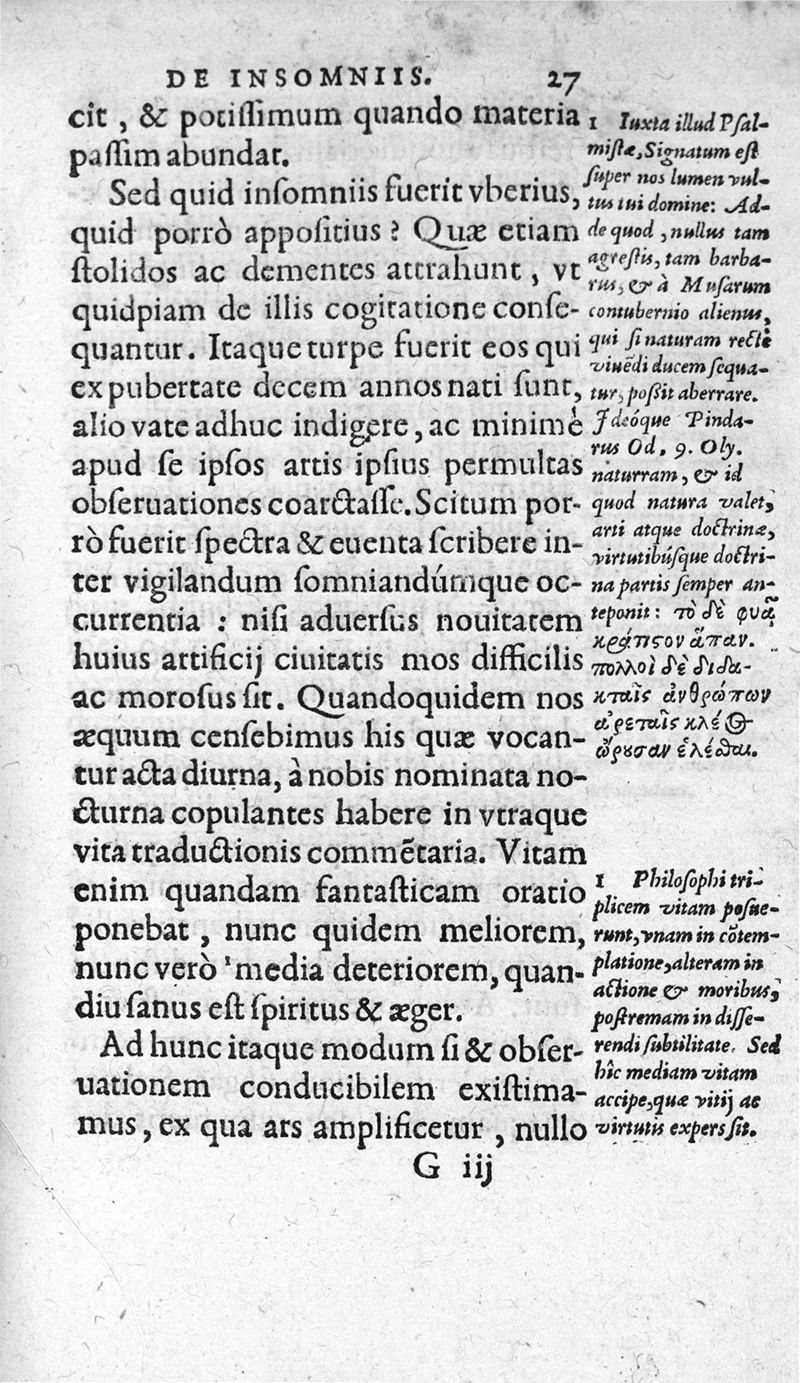 DE INSOMNIIS. 27
cit, & potissimum quando materia
passim abundat.
Sed quid insomniis fuerit vberius,
quid porrò appositius? Quæ etiam
stolidos ac dementes attrahunt, vt
quidpiam de illis cogitatione conse-
quantur. Itaque turpe fuerit eos qui
ex pubertate decem annos nati sunt,
alio vate adhuc indigere, ac minimè
apud se ipsos artis ipsius permultas
obseruationes coarctasse. Scitum por-
rò fuerit spectra & euenta scribere in-
ter vigilandum somniandúmque oc-
currentia: nisi aduersus nouitatem
huius artificij ciuitatis mos difficilis
ac morosus sit. Quandoquidem nos
æquum censebimus his quæ vocan-
tur acta diurna, à nobis nominata no-
cturna copulantes habere in vtraque
vita traductionis commẽtaria. Vitam
enim quandam fantasticam oratio
ponebat, nunc quidem meliorem,
nunc verò media deteriorem, quan-
diu sanus est spiritus & æger.
Ad hunc itaque modum si & obser-
uationem conducibilem existima-
mus, ex qua ars amplificetur, nullo
G iij
1 Iuxta illud Psal-
mistæ, Signatum est
super nos lumen vul-
tus tui domine: Ad-
de quod, nullus tam
agrestis, tam barba-
rus, & à Musarum
contubernio alienus,
qui si naturam rectè
viuẽdi ducem sequa-
tur, possit aberrare.
Ideóque Pinda-
rus Od. 9. Oly.
naturram, & id
quod natura valet,
arti atque doctrinæ,
virtutibúsque doctri-
na partis semper an-
teponit: τὸ δὲ φυᾷ
κράτιστον ἅπαν.
πολλοὶ δὲ διδα-
κταῖς ἀνθρώπων
ἀρεταῖς κλέος
ὤρουσαν ἑλέσθαι.
1 Philosophi tri-
plicem vitam posue-
runt, vnam in cõtem-
platione, alteram in
actione & moribus,
postremam in disse-
rendi subtilitate. Sed
hîc mediam vitam
accipe, quæ vitij ac
virtutis expers sit.